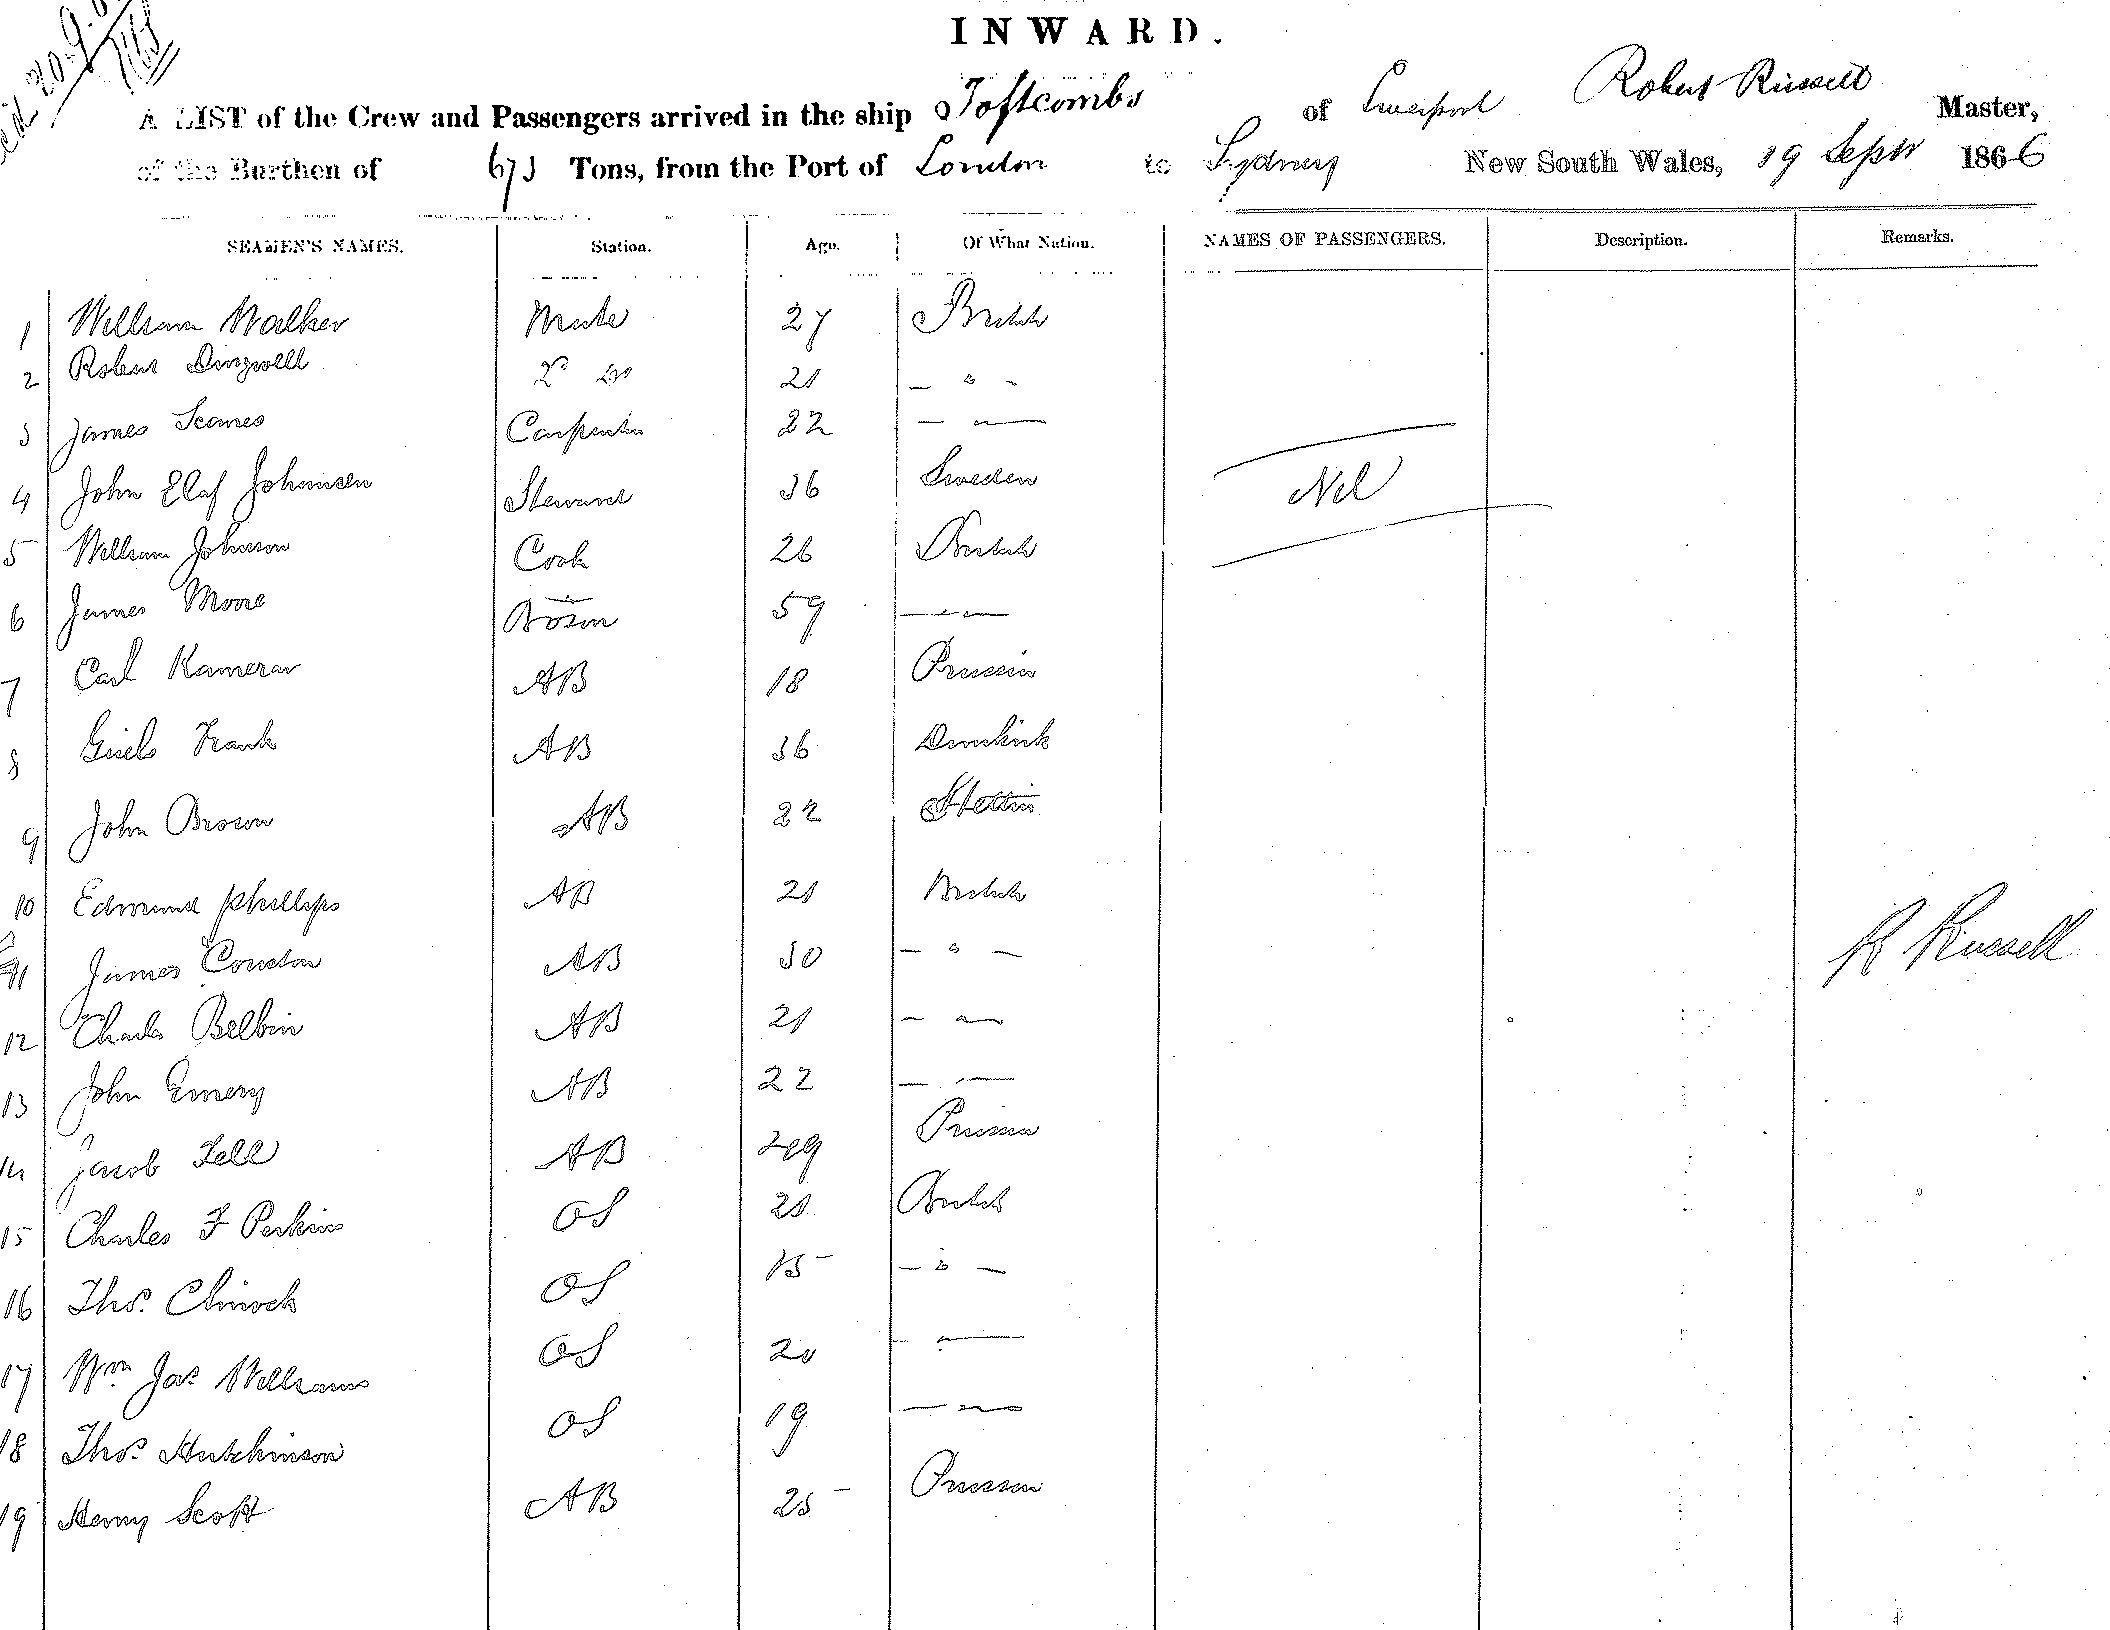 INWARD.
A LIST of the Crew and Passengers arrived in the ship Toftcombs of Liverpool Robert Russell Master,
of the Burthen of 673 Tons, from the Port of London to Sydney New South Wales, 19 Sepr 1866
SEAMEN'S NAMES. Station. Age. Of What Nation. NAMES OF PASSENGERS. Description. Remarks.
1 William Walker Mate 27 British
2 Robert Dingwell 2d Do 21 — " —
3 James Seames Carpenter 22 — " —
4 John Elaf Johansen Steward 36 Sweden Nil
5 William Johnson Cook 26 British
6 James Moore Bosun 59 — " —
7 Carl Kamerar AB 18 Prussia
8 Frank AB 36 Dunkirk
9 John Brown AB 22 Stettin
10 Edmund Phillips AB 21 British
11 James Couston AB 30 — " — R Russell
12 Charles Belbin AB 21 — " —
13 John Emery AB 22 — " —
14 Jacob Fell AB 29 Prussia
15 Charles F Perkins OS 21 British
16 Thos. Chinock OS 15 — " —
17 Wm Jas Williams OS 20 — " —
18 Thos. Hutchinson OS 19 — " —
19 Henry Scott AB 25 Prussia